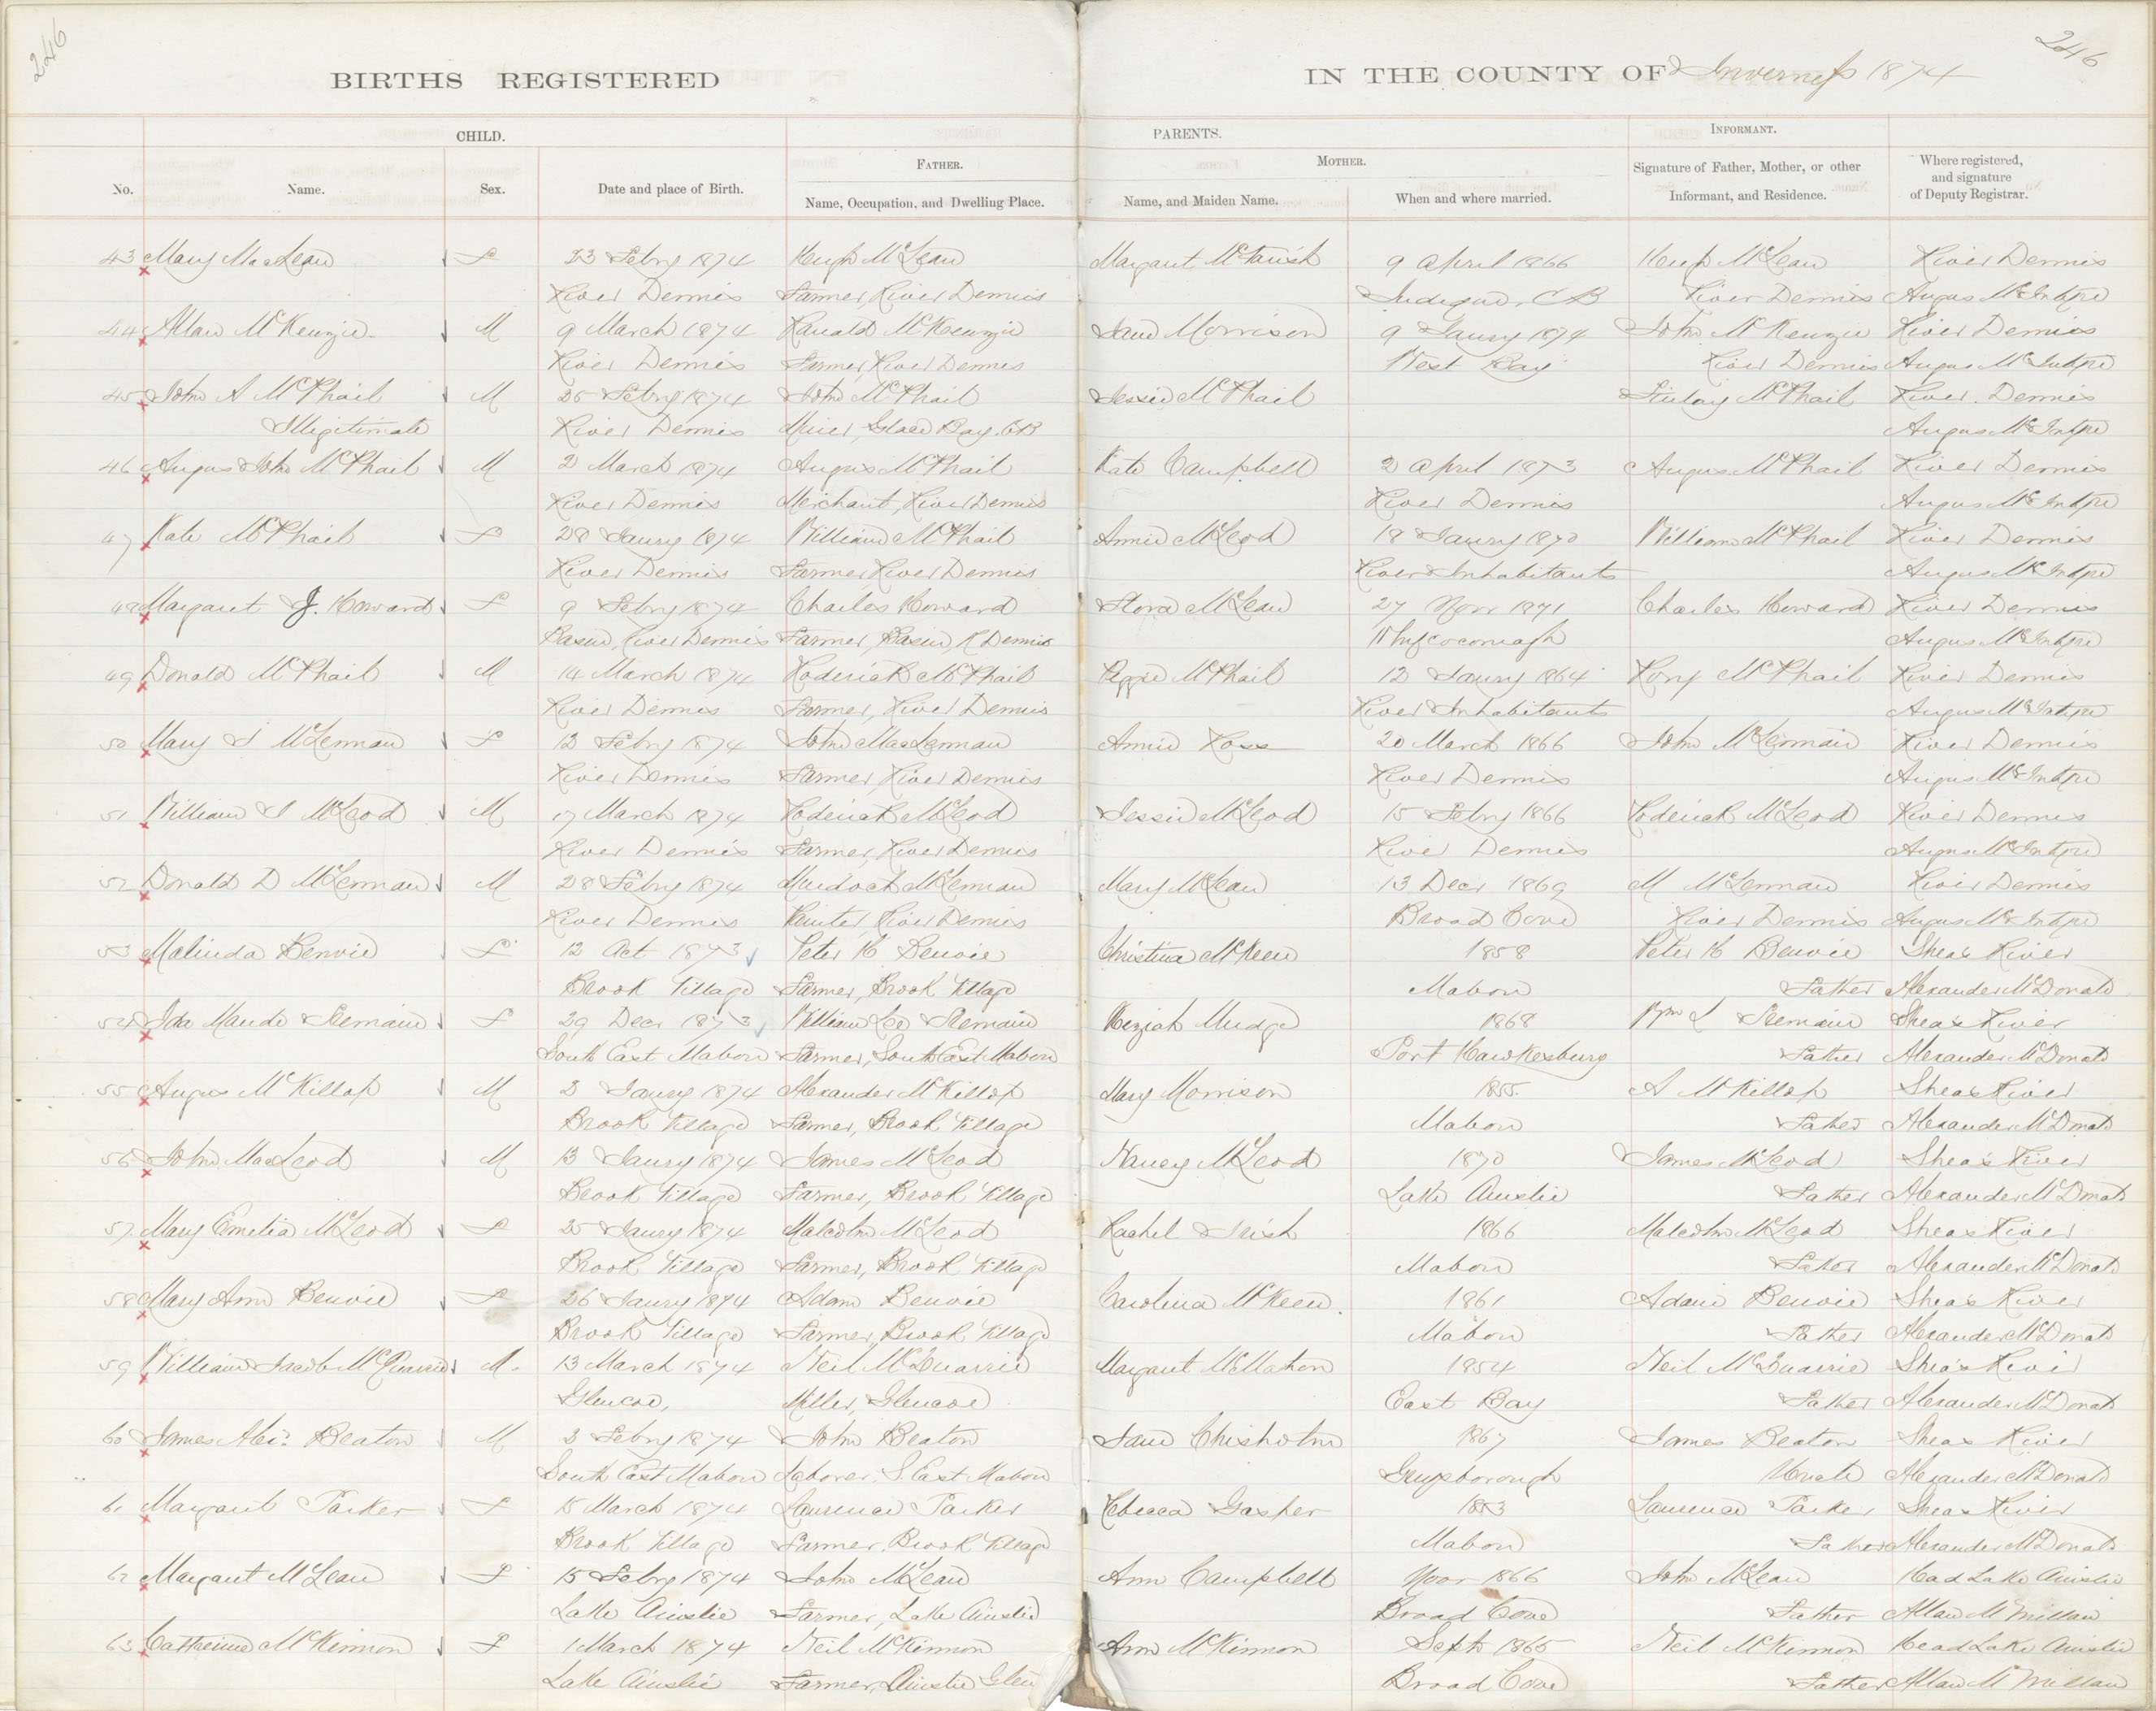 246
246
BIRTHS REGISTERED IN THE COUNTY OF Inverness 1874
CHILD. PARENTS. INFORMANT.
FATHER. MOTHER. Signature of Father, Mother, or other Where registered, and signature
No. Name. Sex. Date and place of Birth. Name, Occupation, and Dwelling Place. Name, and Maiden Name. When and where married. Informant, and Residence. of Deputy Registrar.
43 Mary MacLean F 23 Febry 1874 Hugh McLean Margaret McTavish 9 April 1866 Hugh McLean River Dennis
River Dennis Farmer, River Dennis CB River Dennis Angus McIntyre
44 Allan McKenzie M 9 March 1874 Ranald McKenzie Jane Morrison 9 Jany 1874 John McKenzie River Dennis
River Dennis Farmer, River Dennis West Bay River Dennis Angus McIntyre
45 John A McPhail M 25 Febry 1874 John McPhail Jessie McPhail Finlay McPhail River Dennis
Illegitimate River Dennis Miner, Glace Bay, CB Angus McIntyre
46 Angus John McPhail M 2 March 1874 Angus McPhail Kate Campbell 2 April 1873 Angus McPhail River Dennis
River Dennis Merchant, River Dennis River Dennis Angus McIntyre
47 Kate McPhail F 28 Janry 1874 William McPhail Annie McLeod 18 Janry 1870 William McPhail River Dennis
River Dennis Farmer, River Dennis River Inhabitants Angus McIntyre
48 Margaret J. Howard F 9 Febry 1874 Charles Howard Flora McLean 27 Novr 1871 Charles Howard River Dennis
Basin, River Dennis Farmer, Basin, R Dennis Whycocomagh Angus McIntyre
49 Donald McPhail M 14 March 1874 Roderick McPhail Peggie McPhail 12 Janry 1864 Rory McPhail River Dennis
River Dennis Farmer, River Dennis River Inhabitants Angus McIntyre
50 Mary J McLennan F 12 Febry 1874 John MacLennan Annie Ross 20 March 1866 John McLennan River Dennis
River Dennis Farmer, River Dennis River Dennis Angus McIntyre
51 William J McLeod M 17 March 1874 Roderick McLeod Jessie McLeod 15 Febry 1866 Roderick McLeod River Dennis
River Dennis Farmer, River Dennis River Dennis Angus McIntyre
52 Donald D McLennan M 28 Febry 1874 Murdoch McLennan Mary McLean 13 Decr 1869 M McLennan River Dennis
River Dennis Painter, River Dennis Broad Cove River Dennis Angus McIntyre
53 Malinda Benvie F 12 Oct 1873 Peter H Benvie Christina McKeen 1858 Peter H Benvie Shea's River
Brook Village Farmer, Brook Village Mabou Father Alexander McDonald
54 Ida Maude F 29 Decr 1873 William Lee Keziah Mudge 1868 Wm L Shea's River
South East Mabou Farmer, South East Mabou Port Hawkesbury Father Alexander McDonald
55 Angus McKillop M 2 Janry 1874 Alexander McKillop Mary Morrison 1855 A McKillop Shea's River
Brook Village Farmer, Brook Village Mabou Father Alexander McDonald
56 John MacLeod M 13 Janry 1874 James McLeod Nancy McLeod 1870 James McLeod Shea's River
Brook Village Farmer, Brook Village Lake Ainslie Father Alexander McDonald
57 Mary Emelia McLeod F 25 Janry 1874 Malcolm McLeod Rachel 1866 Malcolm McLeod Shea's River
Brook Village Farmer, Brook Village Mabou Father Alexander McDonald
58 Mary Ann Benvie F 26 Janry 1874 Adam Benvie Carolina McKeen 1861 Adam Benvie Shea's River
Brook Village Farmer, Brook Village Mabou Father Alexander McDonald
59 William Jacob McQuarrie M 13 March 1874 Neil McQuarrie Margaret McMahon 1854 Neil McQuarrie Shea's River
Glencoe, Miller, Glencoe East Bay Father Alexander McDonald
60 James Alexr Beaton M 3 Febry 1874 John Beaton Jane Chisholm 1867 James Beaton Shea's River
South East Mabou Laborer, S. East Mabou Guysborough Uncle Alexander McDonald
61 Margaret Parker F 15 March 1874 Laurence Parker Rebecca Gasher 1853 Laurence Parker Shea's River
Brook Village Farmer, Brook Village Mabou Father Alexander McDonald
62 Margaret McLean F 15 Febry 1874 John McLean Ann Campbell Novr 1866 John McLean Head Lake Ainslie
Lake Ainslie Farmer, Lake Ainslie Broad Cove Father Allan McMillan
63 Catherine McKinnon F 1 March 1874 Neil McKinnon Ann McKinnon Septr 1865 Neil McKinnon Head Lake Ainslie
Lake Ainslie Farmer, Ainslie Glen Broad Cove Father Allan McMillan